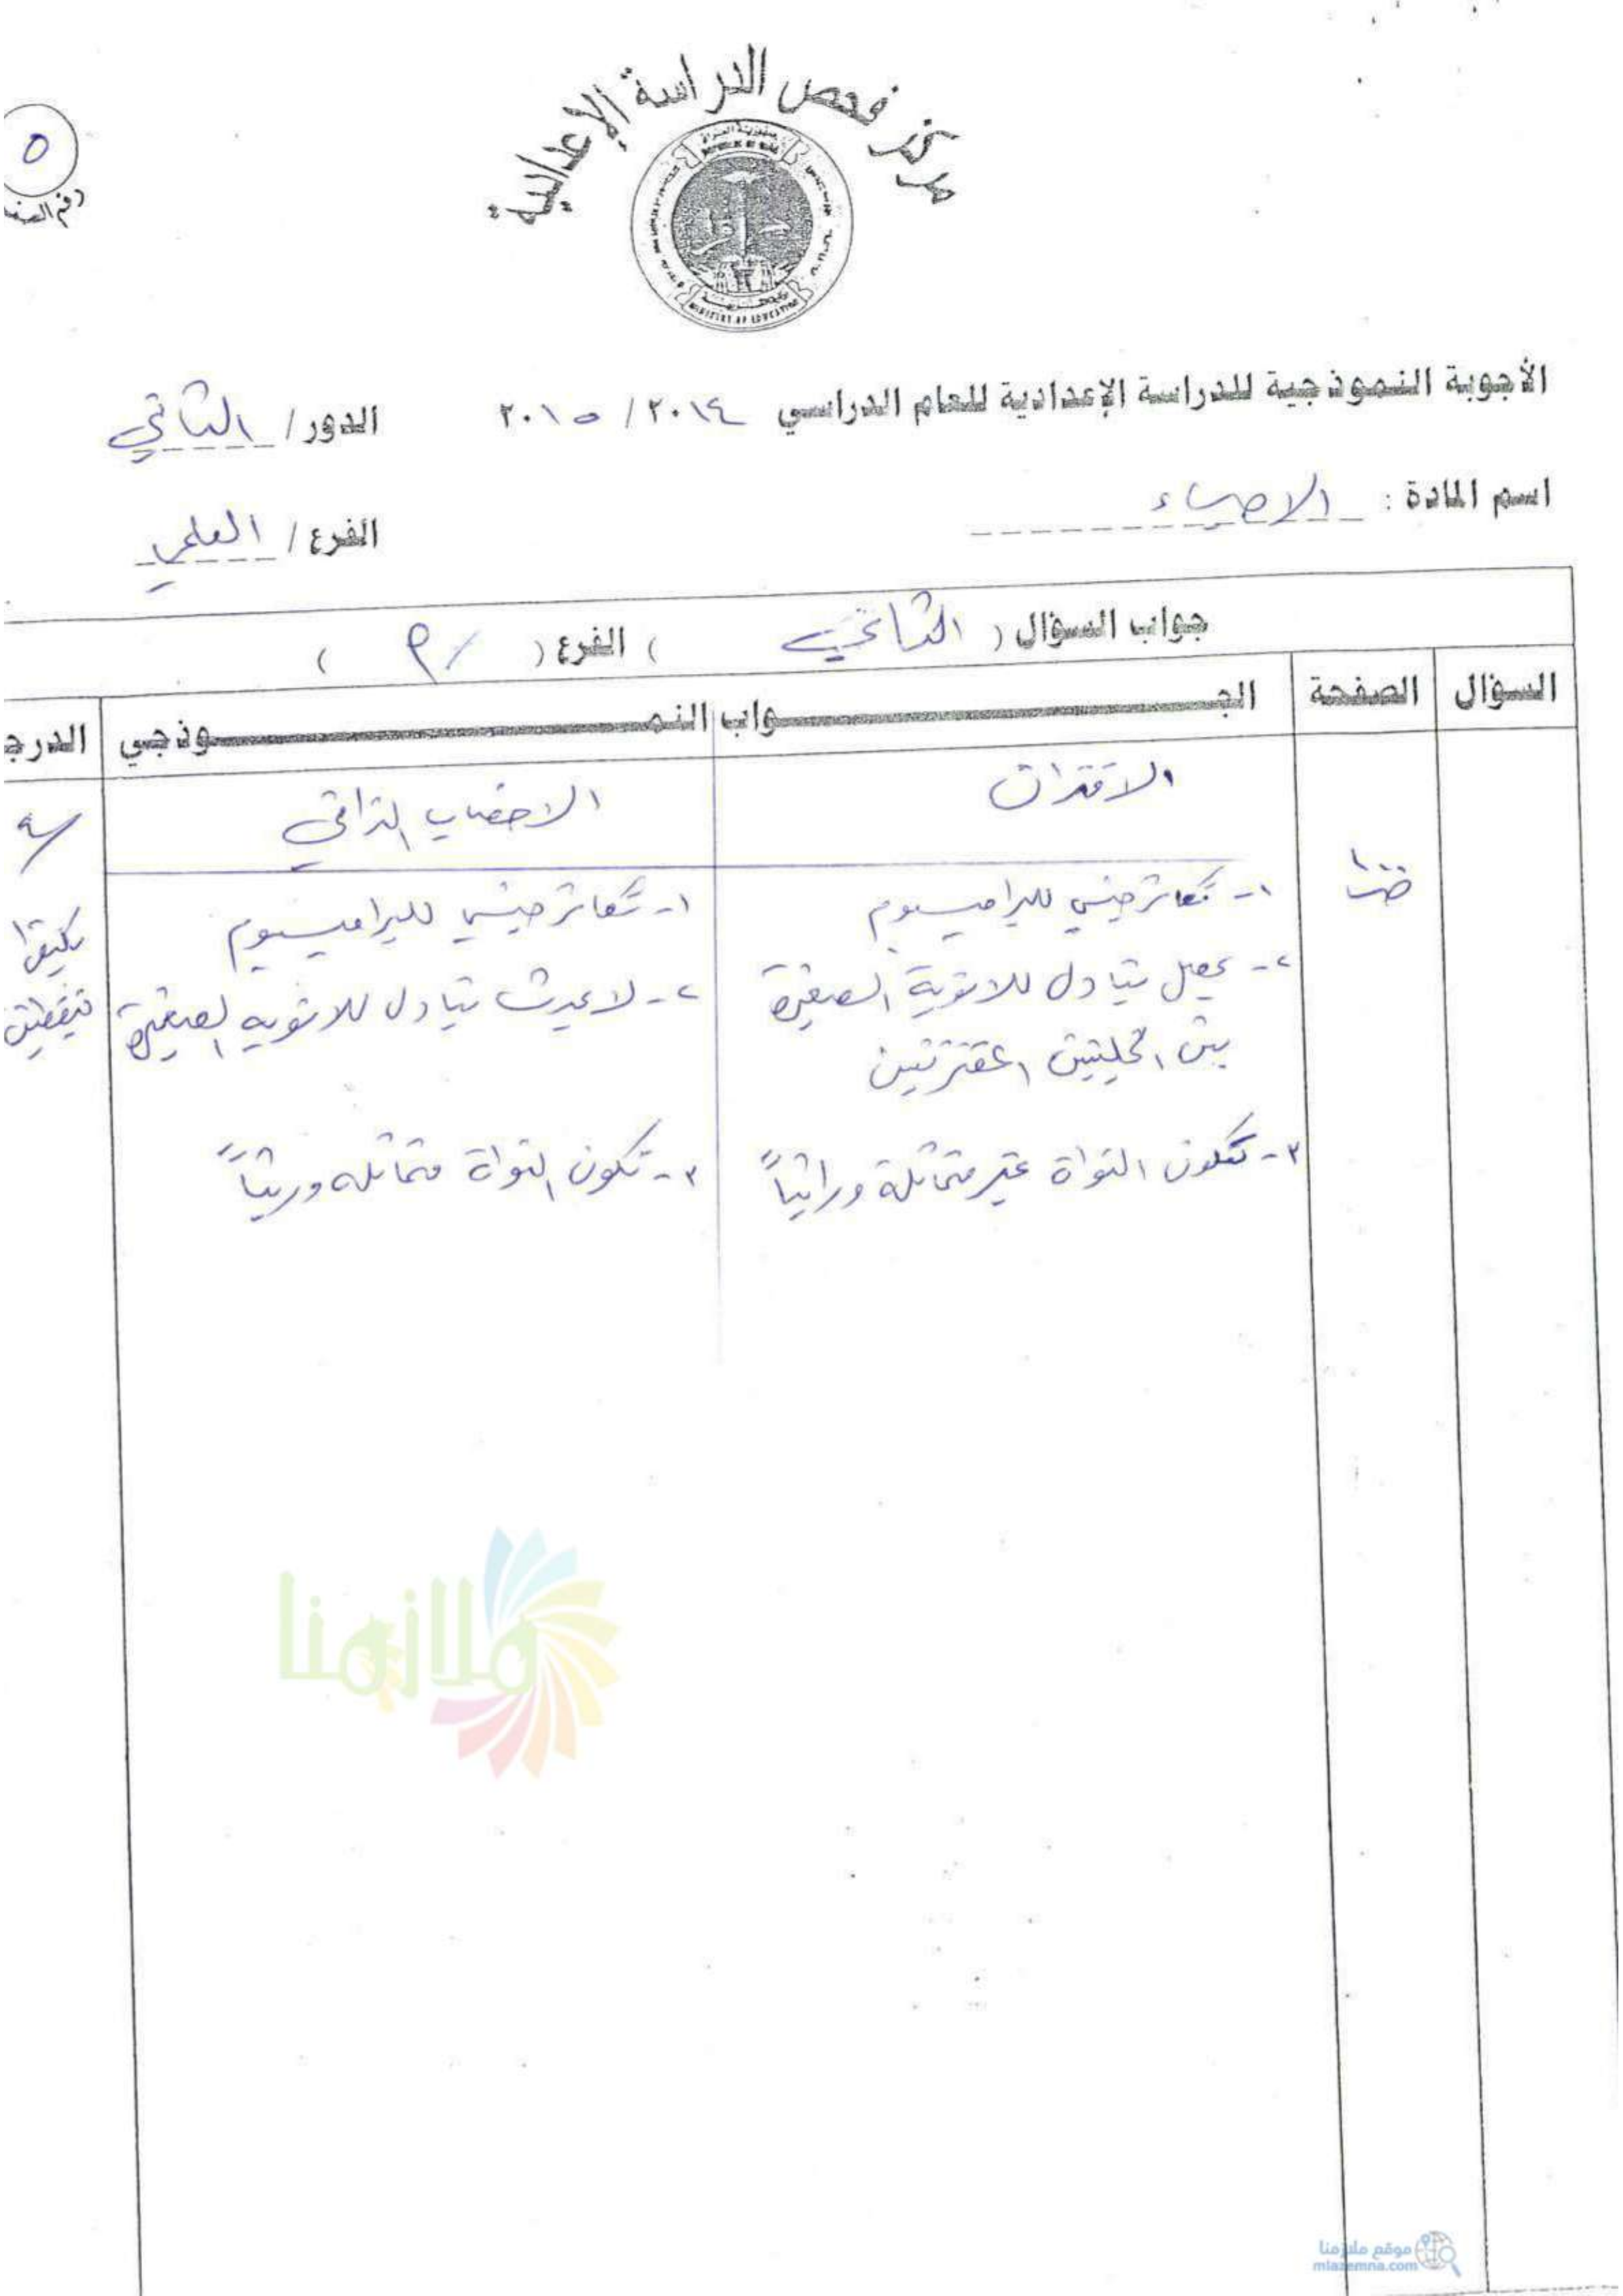 مركز فحص الدراسة الإعدادية
جمهورية العراق
REPUBLIC OF IRAQ
MINISTRY OF EDUCATION
٥
الأجوبة النموذجية للدراسة الإعدادية للعام الدراسي ٢٠١٤ / ٢٠١٥ الدور / الثاني
اسم المادة : الاحياء
الفرع / العلمي
جواب السؤال ( الثاني ) الفرع ( )
السؤال
الصفحة
الجـــواب النمـــوذجي
الدرج
الاقتران
الاخصاب الذاتي
١- تكاثر جنسي للبراميسيوم
٢- يحصل تبادل للانوية الصغيرة
بين الخليتين المقترنتين
٣- تكون النواة غير متماثلة وراثياً
١- تكاثر جنسي للبراميسيوم
٢- لا يحدث تبادل للانويه الصغيرة
٣- تكون النواة متماثله وريثاً
ملازمنا
موقع ملازمنا
mlazemna.com